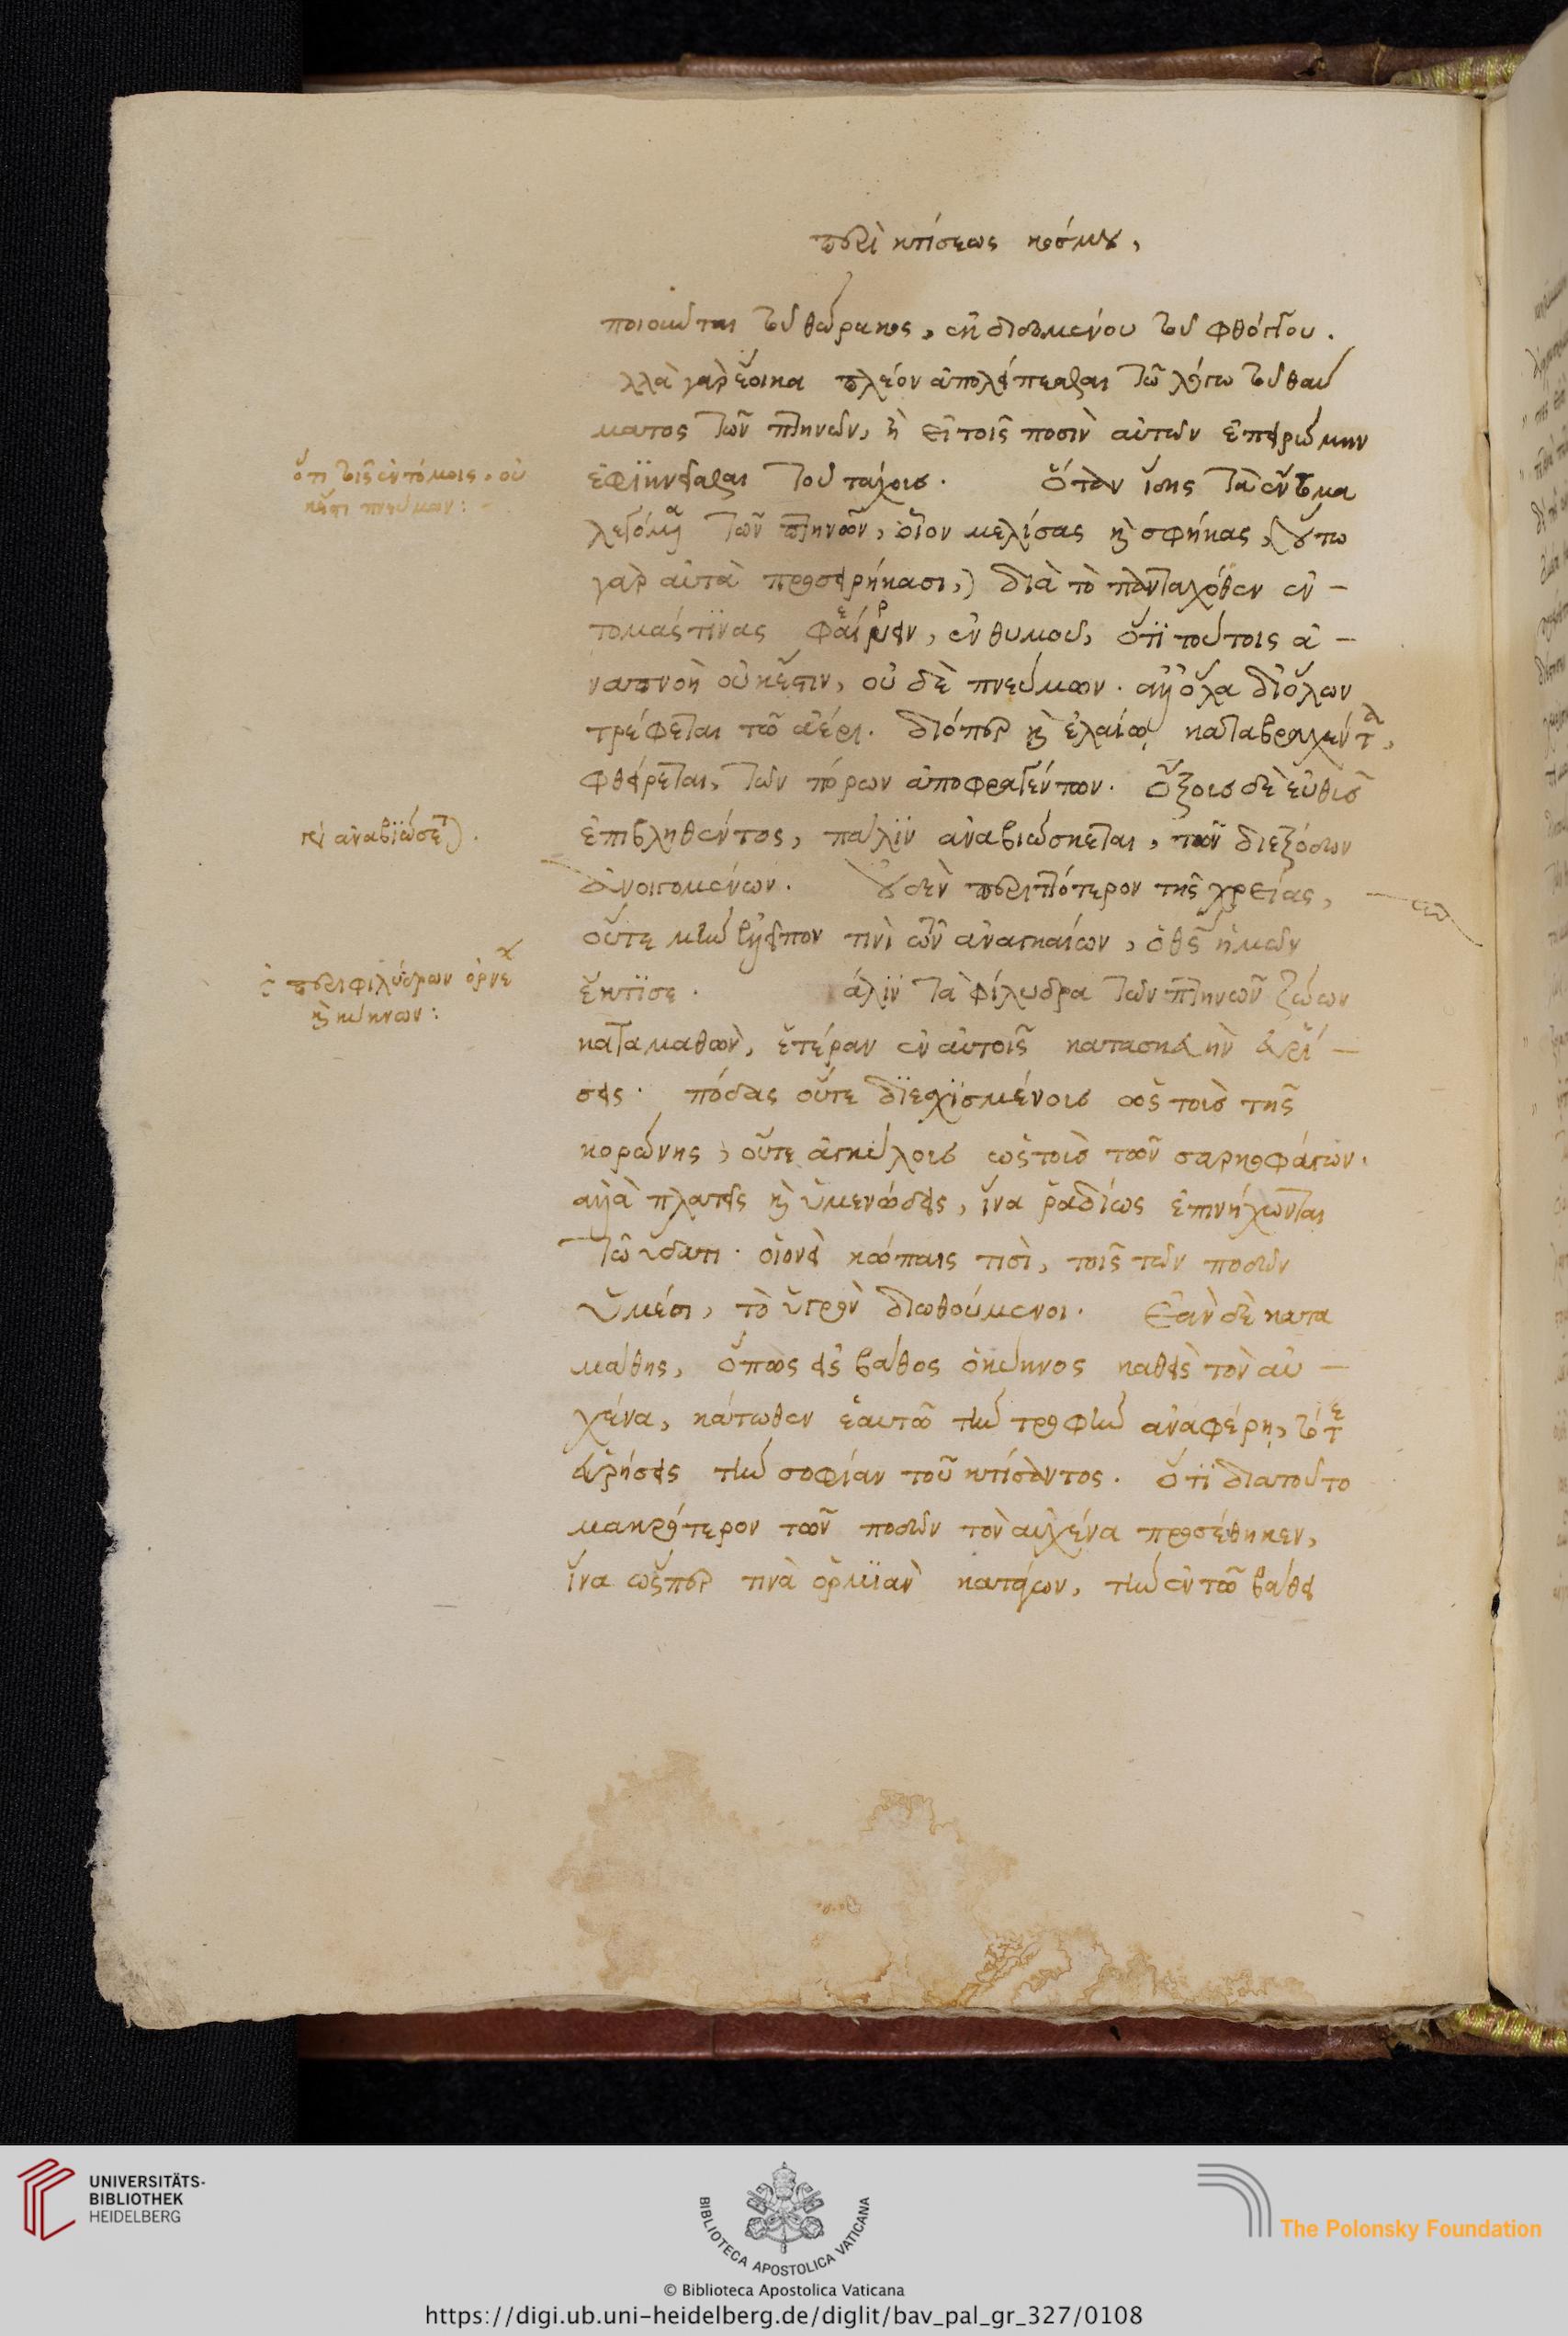 περὶ κτίσεως κόσμου,
ποιοῦνται τοῦ θώρακος, ἐκδιδομένου τοῦ φθόγγου.
λλὰ γὰρ ἔοικα πλέον ἀπολείπεσθαι τῶ λόγω τοῦ θαύ
ματος τῶν πτηνῶν, ἢ εἰ τοῖς ποσὶν αὐτῶν ἐπειρώμην
ἐφϊκνεῖσθαι τοῦ τάχους. Ὅταν ἴδης τὰ ἔντομα
λεγόμενα τῶν πτηνῶν, οἷον μελίσας καὶ σφήκας, (οὕτω
γὰρ αὐτὰ προσειρήκασι,) διὰ τὸ πανταχόθεν ἐν-
τομάς τϊνας φαίνειν, ἐνθυμοῦ, ὅτϊ τούτοις ἀ-
ναπνοὴ οὐκ ἔστιν, οὐδὲ πνεύμων. ἀλλ' ὅλα δι' ὅλων
τρέφεται τῶ ἀέρι. διόπερ καὶ ἐλαίω καταβραχέντα,
φθείρεται, τῶν πόρων ἀποφραγέντων. Ὄξους δὲ εὐθὺς
ἐπιβληθέντος, πάλϊν ἀναβιώσκεται, τῶν διεξόδων
ἀνοιγομένων. Οὐδὲν περιττότερον τῆς χρείας,
οὔτε μὴν ἐλλεῖπον τινὶ τῶν ἀναγκαίων, ὁ θεὸς ἡμῶν
ἔκτϊσε. άλϊν τὰ φίλυδρα τῶν πτηνῶν ζώων
καταμαθὼν, ἑτέραν ἐν αὐτοῖς κατασκευὴν εὑρή-
σεις. πόδας οὔτε δϊεσχϊσμένους ὡς τοὺς τῆς
κορώνης, οὔτε ἀγκύλους ὡς τοὺς τῶν σαρκοφάγων.
ἀλλὰ πλατεῖς καὶ ὑμενώδεις, ἵνα ῥαδίως ἐπινήχωνται
τῶ ὕδατι. οἱονεὶ κώπαις τισὶ, τοῖς τῶν ποδῶν
ὑμέσι, τὸ ὑγρὸν διωθούμενοι. Ἐὰν δὲ κατα
μάθης, ὅπως εἰς βάθος ὁ κύκνος καθεὶς τὸν αὐ-
χένα, κάτωθεν ἑαυτῶ τὴν τροφὴν ἀναφέρη, τότε
εὑρήσεις τὴν σοφίαν τοῦ κτίσαντος. ὅτϊ διατοῦτο
μακρότερον τῶν ποδῶν τὸν αὐχένα προσέθηκεν,
ἵνα ὥσπερ τινὰ ὁρμϊὰν κατάγων, τὴν ἐν τῶ βάθει
ὅτι τοῖς ἐντόμοις, οὐ
κ ἔστι πνεύμων:
ἀναβϊώσεται.
περὶ φιλύδρων ὀρνέων
καὶ κύκνων:
UNIVERSITÄTS-
BIBLIOTHEK
HEIDELBERG
BIBLIOTECA APOSTOLICA VATICANA
© Biblioteca Apostolica Vaticana
The Polonsky Foundation
https://digi.ub.uni-heidelberg.de/diglit/bav_pal_gr_327/0108